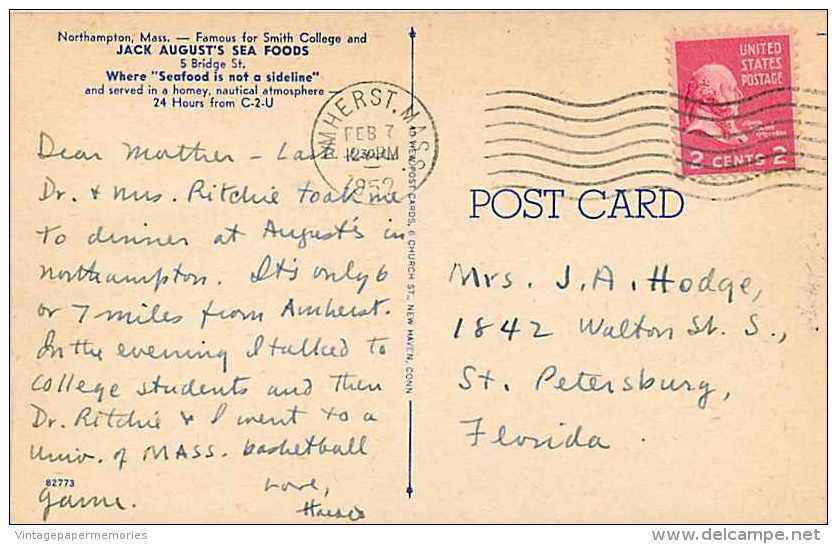 Northampton, Mass. — Famous for Smith College and
JACK AUGUST'S SEA FOODS
5 Bridge St.
Where "Seafood is not a sideline"
and served in a homey, nautical atmosphere —
24 Hours from C-2-U
Dear Mother —
Dr. & Mrs. Ritchie took me
to dinner at August's in
Northampton. It's only 6
or 7 miles from Amherst.
In the evening I talked to
college students and then
Dr. Ritchie & I went to a
Univ. of MASS. basketball
game.
Love,
82773
POST CARDS, 6 CHURCH ST., NEW HAVEN, CONN
AMHERST, MASS.
FEB 7
PM
1952
UNITED
STATES
POSTAGE
2 CENTS 2
POST CARD
Mrs. J. A. Hodge,
1842 Walton St. S.,
St. Petersburg,
Florida.
Vintagepapermemories
delcampe.net